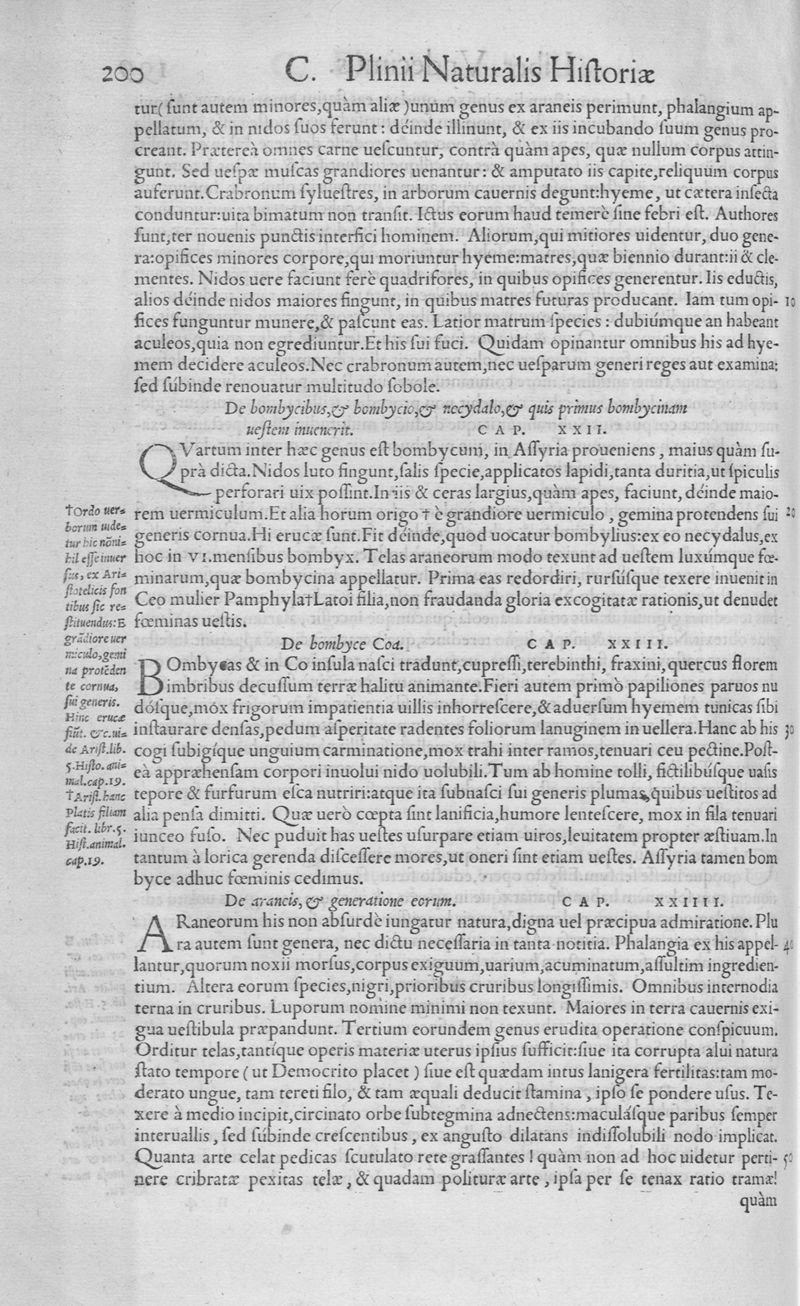 200 C. Plinii Naturalis Hiſtoriæ
tur( ſunt autem minores,quàm aliæ )unum genus ex araneis perimunt, phalangium ap-
pellatum, & in nidos ſuos ferunt : déinde illinunt, & ex iis incubando ſuum genus pro-
creant. Prætereà omnes carne ueſcuntur, contrà quàm apes, quæ nullum corpus attin-
gunt. Sed ueſpæ muſcas grandiores uenantur: & amputato iis capite,reliquum corpus
auferunt.Crabronum ſylueſtres, in arborum cauernis degunt:hyeme, ut cætera inſecta
conduntur:uita bimatum non tranſit. Ictus eorum haud temerè ſine febri eſt. Authores
ſunt,ter nouenis punctis interfici hominem. Aliorum,qui mitiores uidentur, duo gene-
ra:opifices minores corpore,qui moriuntur hyeme:matres,quæ biennio durant:ii & cle-
mentes. Nidos uere faciunt ferè quadrifores, in quibus opifices generentur. Iis eductis,
alios déinde nidos maiores fingunt, in quibus matres futuras producant. Iam tum opi- 10
fices funguntur munere,& paſcunt eas. Latior matrum ſpecies : dubiúmque an habeant
aculeos,quia non egrediuntur.Et his ſui fuci. Quidam opinantur omnibus his ad hye-
mem decidere aculeos.Nec crabronum autem,nec ueſparum generi reges aut examina:
ſed ſubinde renouatur multitudo ſobole.
De bombycibus,& bombycio,& necydalo,& quis primus bombycinam
ueſtem inuenerit. CAP. XXII.
QVartum inter hæc genus eſt bombycum, in Aſſyria proueniens , maius quàm ſu-
prà dicta.Nidos luto fingunt,ſalis ſpecie,applicatos lapidi,tanta duritia,ut ſpiculis
perforari uix poſſint.In iis & ceras largius,quàm apes, faciunt, déinde maio-
rem uermiculum.Et alia horum origo † è grandiore uermiculo , gemina protendens ſui 20
generis cornua.Hi erucæ ſunt.Fit déinde,quod uocatur bombylius:ex eo necydalus,ex
hoc in VI.menſibus bombyx. Telas araneorum modo texunt ad ueſtem luxúmque fœ-
minarum,quæ bombycina appellatur. Prima eas redordiri, rurſúſque texere inuenit in
Ceo mulier Pamphyla†Latoi filia,non fraudanda gloria excogitatæ rationis,ut denudet
fœminas ueſtis.
†Ordo uer=
borum uide=
tur hic nōni=
hil eſſe inuer
ſus, ex Ari=
ſtotelicis fon
tibus ſic re=
ſtituendus:E
grādiore uer
miculo,gemi
na protēden
te cornua,
ſui generis.
Hinc erucæ
fiūt. &c.ui=
de Ariſt.lib.
5.Hiſto.ani=
mal.cap.19.
†Ariſt.hanc
Platis filiam
facit. libr.5.
Hiſt.animal.
cap.19.
De bombyce Coa. CAP. XXIII.
BOmbycas & in Co inſula naſci tradunt,cupreſſi,terebinthi, fraxini,quercus florem
imbribus decuſſum terræ halitu animante.Fieri autem primò papiliones paruos nu
dóſque,mox frigorum impatientia uillis inhorreſcere,& aduerſum hyemem tunicas ſibi
inſtaurare denſas,pedum aſperitate radentes foliorum lanuginem in uellera.Hanc ab his 30
cogi ſubigíque unguium carminatione,mox trahi inter ramos,tenuari ceu pectine.Poſt-
eà appræhenſam corpori inuolui nido uolubili.Tum ab homine tolli, fictilibúſque uaſis
tepore & furfurum eſca nutriri:atque ita ſubnaſci ſui generis plumas,quibus ueſtitos ad
alia penſa dimitti. Quæ uerò cœpta ſint lanificia,humore lenteſcere, mox in fila tenuari
iunceo fuſo. Nec puduit has ueſtes uſurpare etiam uiros,leuitatem propter æſtiuam.In
tantum à lorica gerenda diſceſſere mores,ut oneri ſint etiam ueſtes. Aſſyria tamen bom
byce adhuc fœminis cedimus.
De araneis, & generatione eorum. CAP. XXIIII.
ARaneorum his non abſurdè iungatur natura,digna uel præcipua admiratione. Plu
ra autem ſunt genera, nec dictu neceſſaria in tanta notitia. Phalangia ex his appel- 40
lantur,quorum noxii morſus,corpus exiguum,uarium,acuminatum,aſſultim ingredien-
tium. Altera eorum ſpecies,nigri,prioribus cruribus longiſſimis. Omnibus internodia
terna in cruribus. Luporum nomine minimi non texunt. Maiores in terra cauernis exi-
gua ueſtibula præpandunt. Tertium eorundem genus erudita operatione conſpicuum.
Orditur telas,tantíque operis materiæ uterus ipſius ſufficit:ſiue ita corrupta alui natura
ſtato tempore ( ut Democrito placet ) ſiue eſt quædam intus lanigera fertilitas:tam mo-
derato ungue, tam tereti filo, & tam æquali deducit ſtamina , ipſo ſe pondere uſus. Te-
xere à medio incipit,circinato orbe ſubtegmina adnectens:maculáſque paribus ſemper
interuallis , ſed ſúbinde creſcentibus , ex anguſto dilatans indiſſolubili nodo implicat.
Quanta arte celat pedicas ſcutulato rete graſſantes ! quàm non ad hoc uidetur perti- 50
nere cribratæ pexitas telæ, & quadam polituræ arte , ipſa per ſe tenax ratio tramæ!
quàm